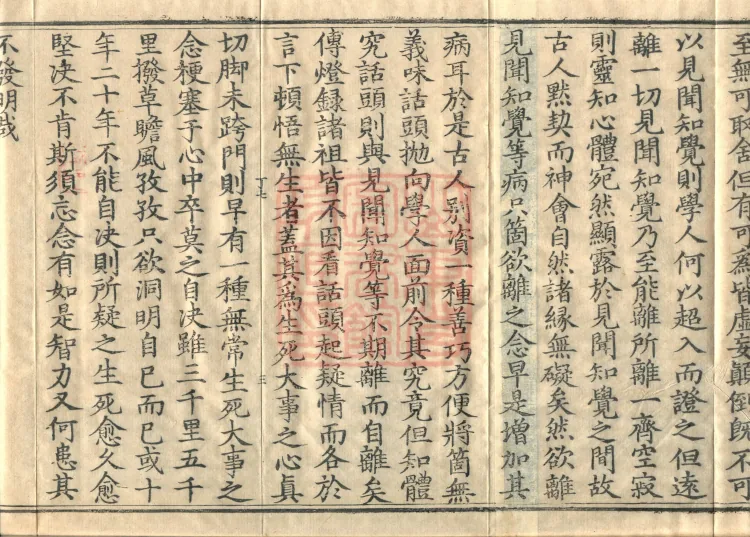 至無可取舍但有可為皆虛妄顛倒既不可
以見聞知覺則學人何以超入而證之但遠
離一切見聞知覺乃至能離所離一齊空寂
則靈知心體宛然顯露於見聞知覺之間故
古人默契而神會自然諸緣無礙矣然欲離
見聞知覺等病只箇欲離之念早是增加其
病耳於是古人別資一種善巧方便將箇無
義味話頭拋向學人面前令其究竟但知體
究話頭則與見聞知覺等不期離而自離矣
傳燈録諸祖皆不因看話頭起疑情而各於
言下頓悟無生者蓋其爲生死大事之心真
切脚未跨門則早有一種無常生死大事之
念梗塞于心中卒莫之自決雖三千里五千
里撥草瞻風孜孜只欲洞明自已而已或十
年二十年不能自决則所疑之生死愈久愈
堅决不肯斯須忘念有如是智力又何患其
不發明哉
丁七
三